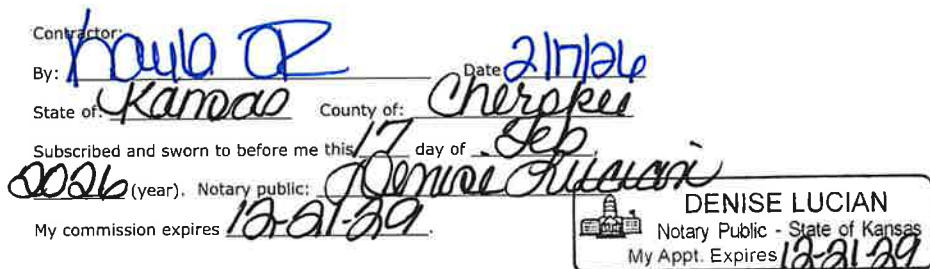 Contractor:
By: Kayla Date 2/17/26
State of: Kansas County of: Cherokee
Subscribed and sworn to before me this 17 day of Feb,
2026 (year). Notary public: Denise Lucian
My commission expires 12-21-29.
DENISE LUCIAN
Notary Public - State of Kansas
My Appt. Expires 12-21-29